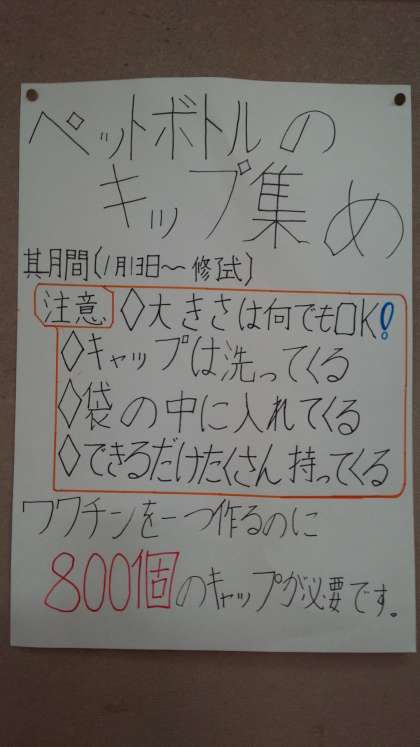 ペットボトルの
キップ集め
其月間(1月13日〜修試)
注意 ◇大きさは何でもOK!
◇キャップは洗ってくる
◇袋の中に入れてくる
◇できるだけたくさん持ってくる
ワクチンを一つ作るのに
800個のキャップが必要です。